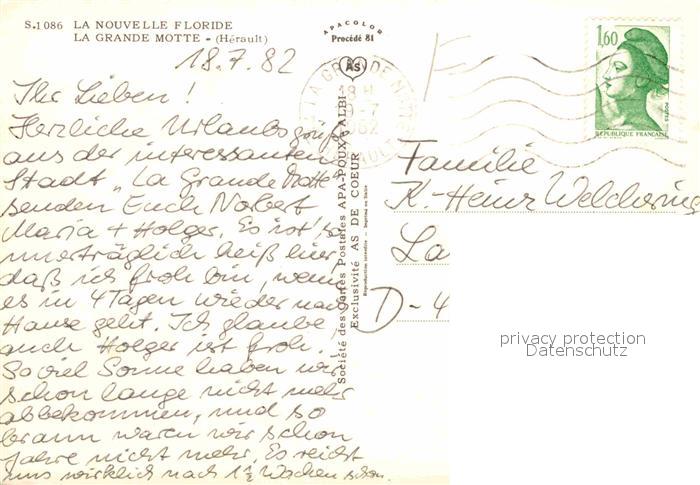 S.1086 LA NOUVELLE FLORIDE
LA GRANDE MOTTE - (Hérault)
18.7.82
Ihr Lieben!
Herzliche Urlaubsgrüße
aus der interessanten
Stadt „La Grande Motte"
senden Euch Norbert
Maria + Holger. Es ist so
unerträglich heiß hier,
daß ich froh bin, wenn
es in 4 Tagen wieder nach
Hause geht. Ich glaube,
auch Holger ist froh.
So viel Sonne haben wir
schon lange nicht mehr
abbekommen, und so
braun waren wir schon
Jahre nicht mehr. Es reicht
uns wirklich nach 1½ Wochen schon.
APACOLOR
Procédé 81
AS
Société des Cartes Postales APA-POUX - ALBI
Exclusivité AS DE COEUR
Reproduction interdite - Imprimé en Italie
LA GRANDE MOTTE
18 H
9-7
1982
HERAULT
1,60
POSTES
REPUBLIQUE FRANÇAISE
Familie
K.-Heinz Welchering
La
D-4
privacy protection
Datenschutz